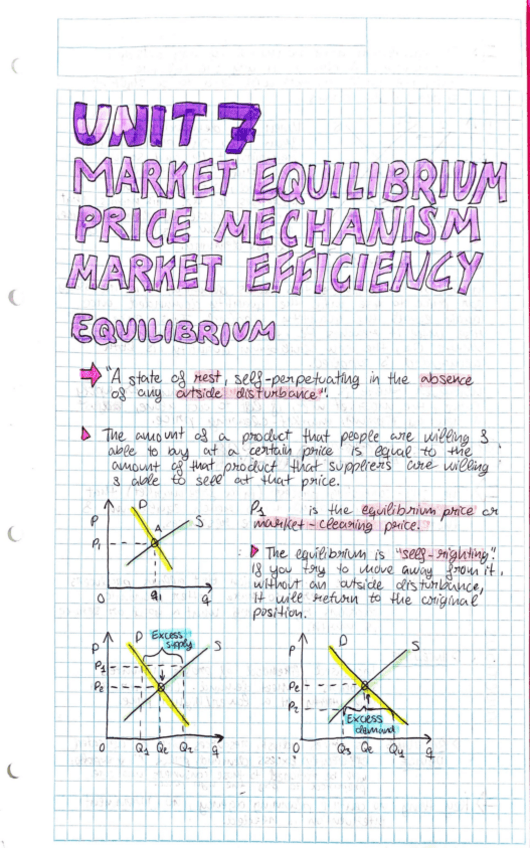 UNIT 7
MARKET EQUILIBRIUM
PRICE MECHANISM
MARKET EFFICIENCY
EQUILIBRIUM
"A state of rest, self-perpetuating in the absence
of any outside disturbance".
The amount of a product that people are willing &
able to buy at a certain price is equal to the
amount of that product that suppliers are willing
& able to sell at that price.
P
D
A
S
P1
0
q1
q
P1 is the equilibrium price or
market-clearing price.
The equilibrium is "self-righting".
If you try to move away from it,
without an outside disturbance,
it will return to the original
position.
P
D
Excess
supply
S
P1
Pe
0
Q1
Qe
Q2
q
P
D
S
Pe
P2
Excess
demand
0
Q3
Qe
Q4
q